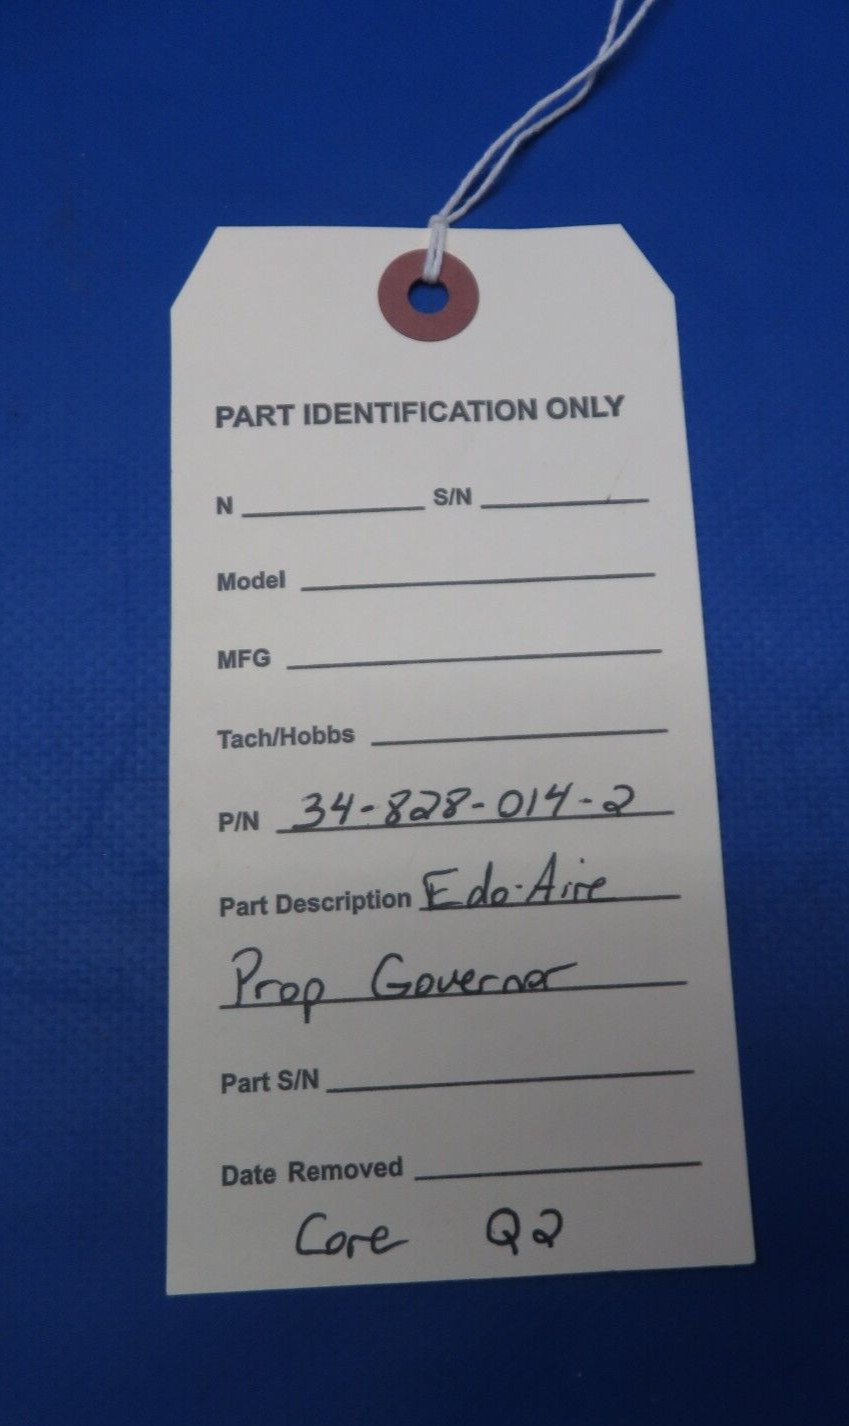 PART IDENTIFICATION ONLY
N S/N
Model
MFG
Tach/Hobbs
P/N 34-828-014-2
Part Description Edo-Aire
Prop Governor
Part S/N
Date Removed
Core Q2